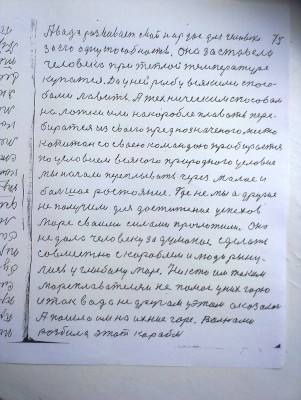 75
А вода развивает свой народ для человека
за его одну способность. Она заставела
человека при теплой температуре
купатся. Да у ней рыбу всякими спосо-
бами лавить. А техническим способам
на лотки или на корабле плавать пере-
биратся из своего предназначеного места
капитан со своею командою прибиратся
по условием всякого природного условие
мы начали преплывать через малые и
большие ростояние. Где не мы а другие
не получили для достижение успехов
море своими силами проглотили. Оно
не дало человеку задуманое сделать
совместно с кораблем и люди рину-
лись у глыбану море. Никто им таким
мореплавателям не помог у них горю
и так вода не другом у этом оказалос
А пошло им на ихние горе. Волнами
розбила этот карабль